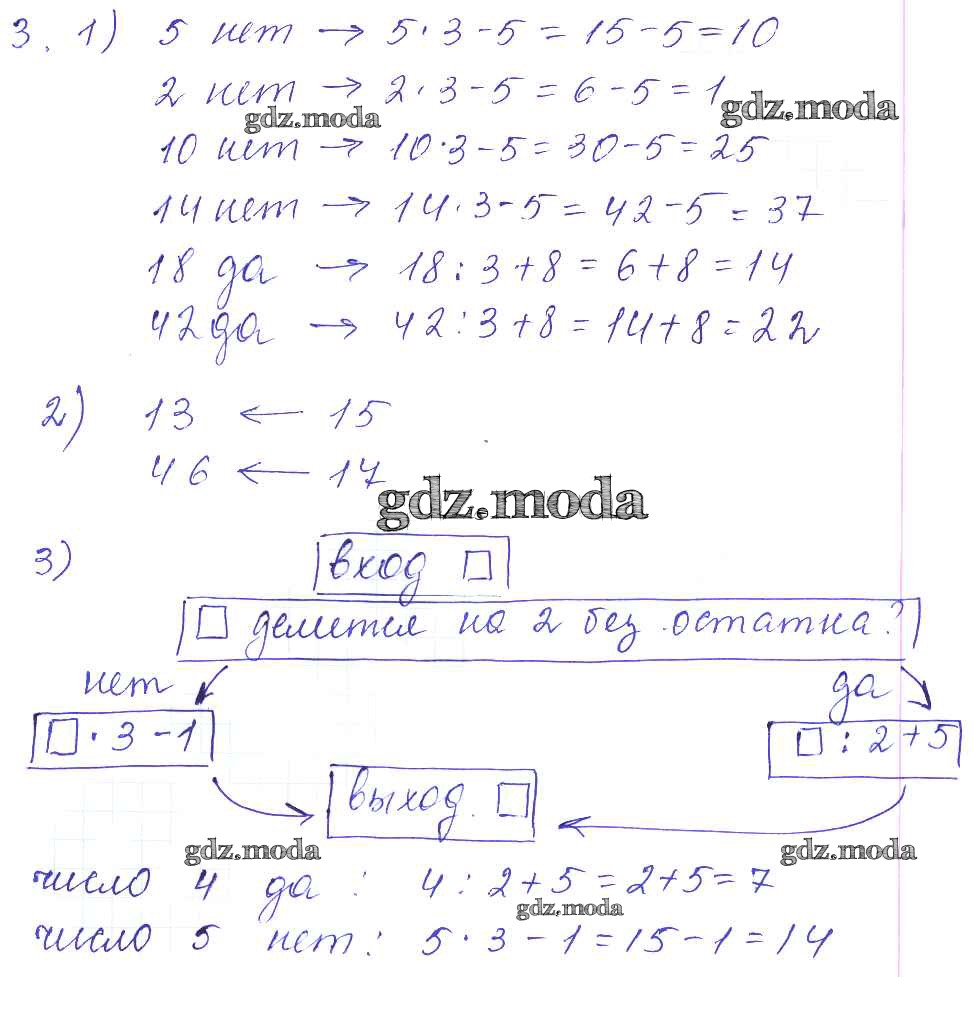 3. 1) 5 нет → 5·3-5=15-5=10
2 нет → 2·3-5=6-5=1
gdz.moda
gdz.moda
10 нет → 10·3-5=30-5=25
14 нет → 14·3-5=42-5=37
18 да → 18:3+8=6+8=14
42 да → 42:3+8=14+8=22
2) 13 ← 15
46 ← 17
gdz.moda
3) вход □
□ делится на 2 без остатка?
нет да
□·3-1 □:2+5
выход. □
gdz.moda gdz.moda
число 4 да : 4:2+5=2+5=7
gdz.moda
число 5 нет: 5·3-1=15-1=14